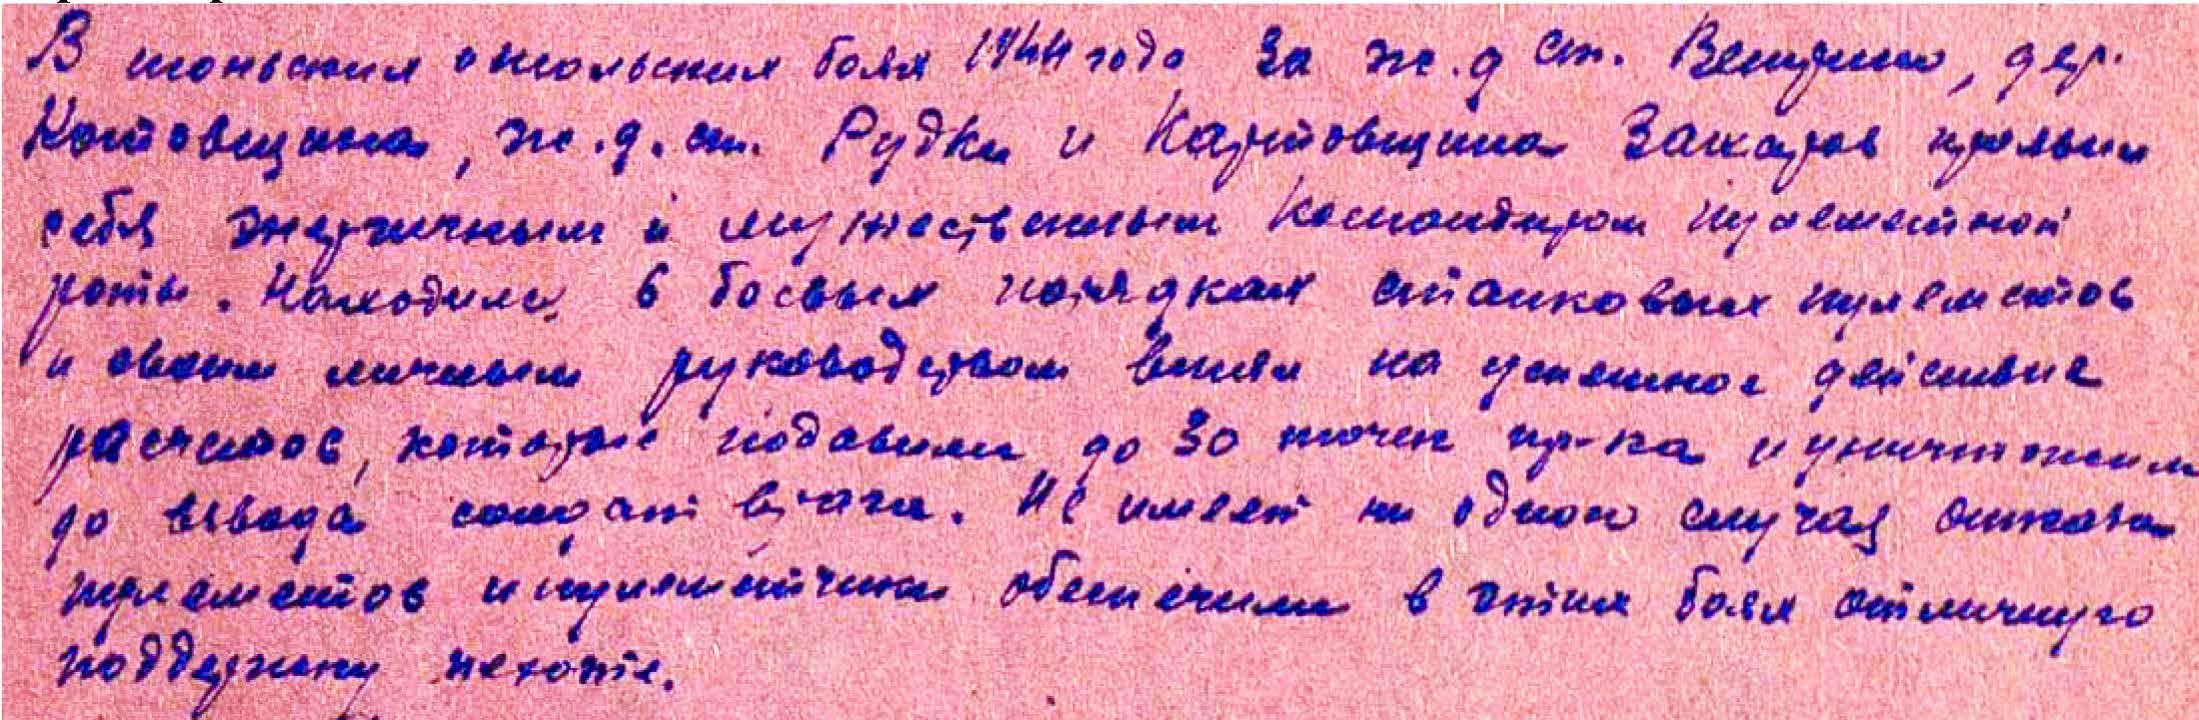 В июньских и июльских боях 1944 года за ж.д ст. Ветрино, дер.
Котовщина, ж.д.ст. Рудки и Картовщина Захаров проявил
себя энергичным и мужественным командиром пулеметной
роты. Находился в боевых порядках станковых пулеметов
и своим личным руководством влиял на успешное действие
расчетов, которые подавили до 30 точек пр-ка и уничтожили
до взвода солдат врага. Не имеет ни одного случая отказа
пулеметов и пулеметчики обеспечили в этих боях отличную
поддержку пехоте.